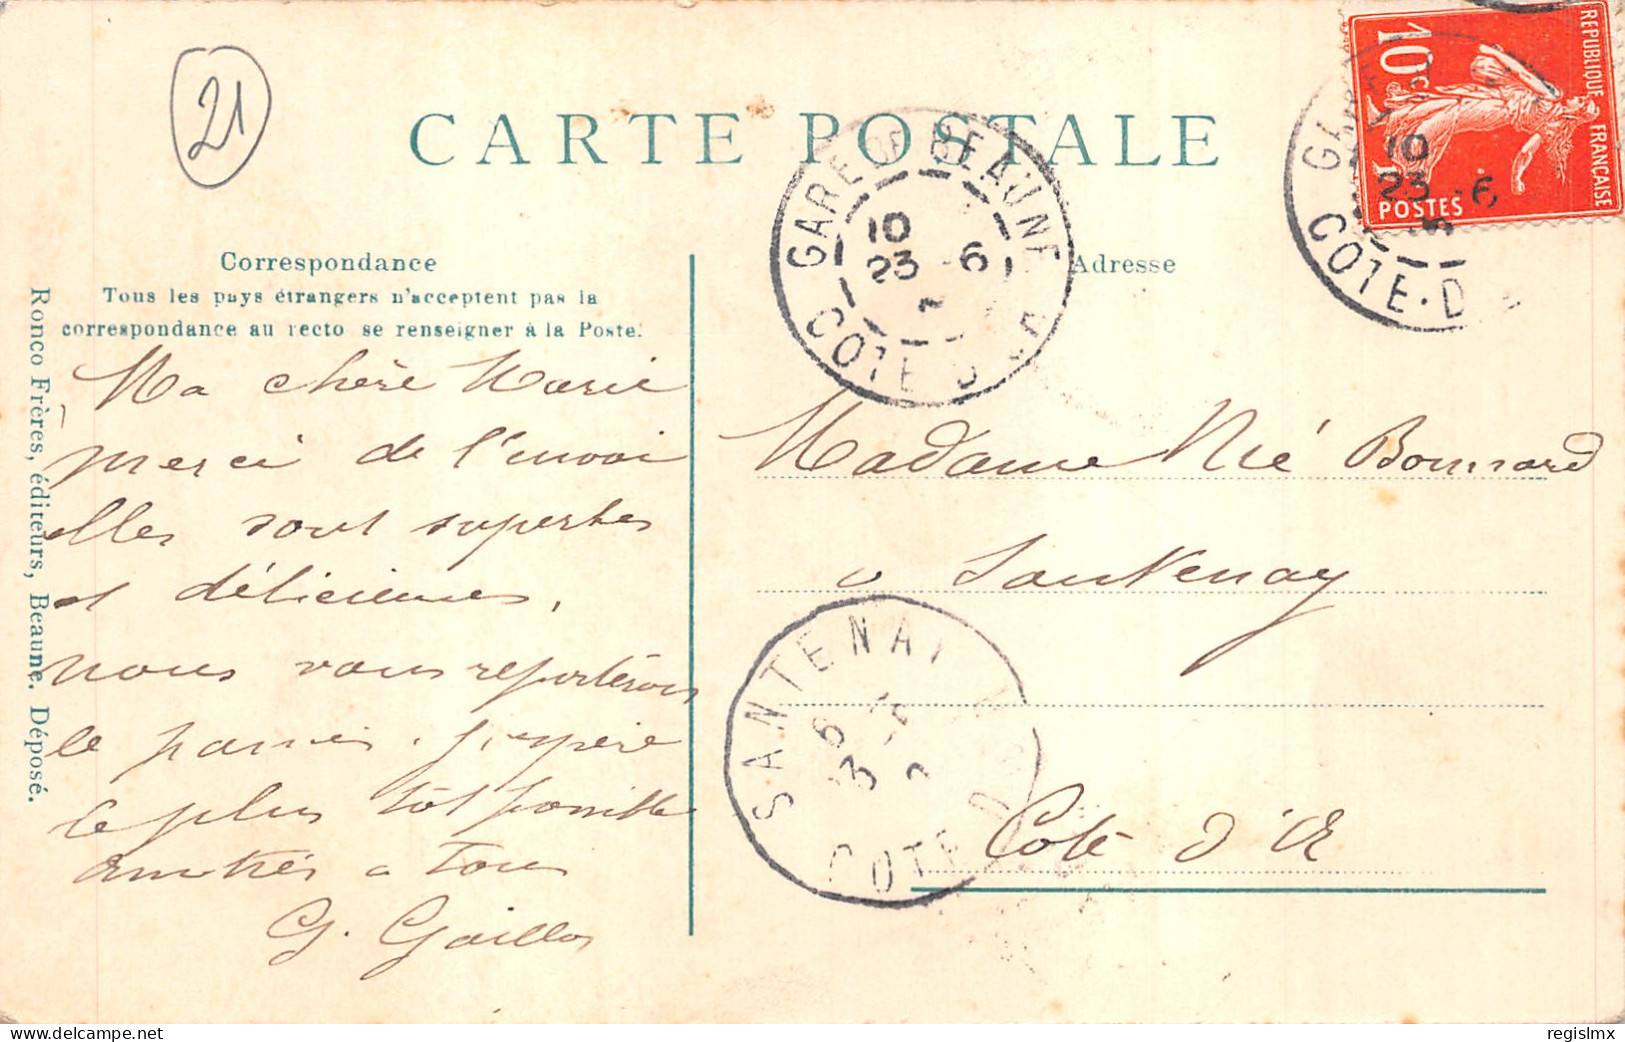 21
CARTE POSTALE
REPUBLIQUE FRANÇAISE
10c
POSTES
GARE DE BEAUNE
10
23 6
COTE D'OR
GARE
10
23 6
COTE-D
Correspondance
Tous les pays étrangers n'acceptent pas la
correspondance au recto se renseigner à la Poste.
Adresse
Ronco Frères, éditeurs, Beaune. Déposé.
Ma chère Marie
merci de l'envoi
elles sont superbes
et délicieuses,
nous vous reporterons
le panier. j'espère
le plus tôt possible
amitiés a tous
G. Gaillos
Madame Nié Bonnard
à Santenay
Cote d'Or
SANTENAY
COTE D'OR
regislmx